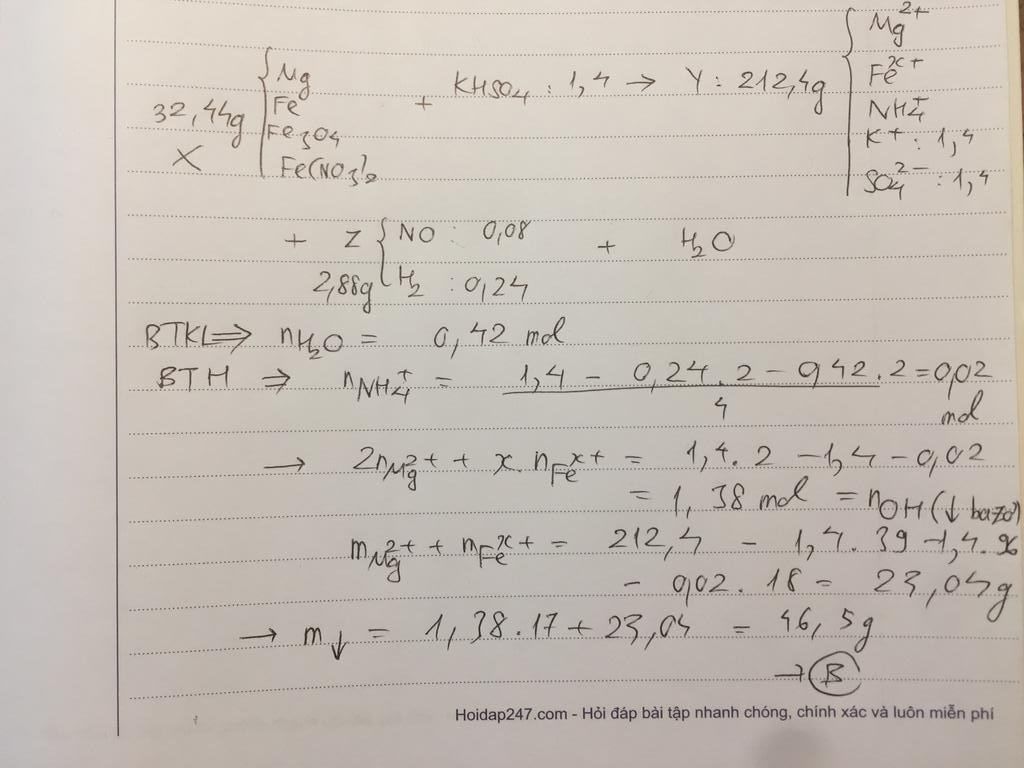 32,44g X { Mg Fe Fe3O4 Fe(NO3)2 + KHSO4 : 1,4 → Y : 212,4g { Mg2+ Fex+ NH4+ K+ : 1,4 SO42- : 1,4
+ Z 2,88g { NO : 0,08 H2 : 0,24 + H2O
BTKL ⇒ nH2O = 0,42 mol
BTH ⇒ nNH4+ = (1,4 - 0,24.2 - 0,42.2)/4 = 0,02 mol
→ 2nMg2+ + x.nFex+ = 1,4.2 - 1,4 - 0,02
= 1,38 mol = nOH (↓ bazơ)
mMg2+ + mFex+ = 212,4 - 1,4.39 - 1,4.96
- 0,02.18 = 23,04g
→ m↓ = 1,38.17 + 23,04 = 46,5g
→ B
Hoidap247.com - Hỏi đáp bài tập nhanh chóng, chính xác và luôn miễn phí